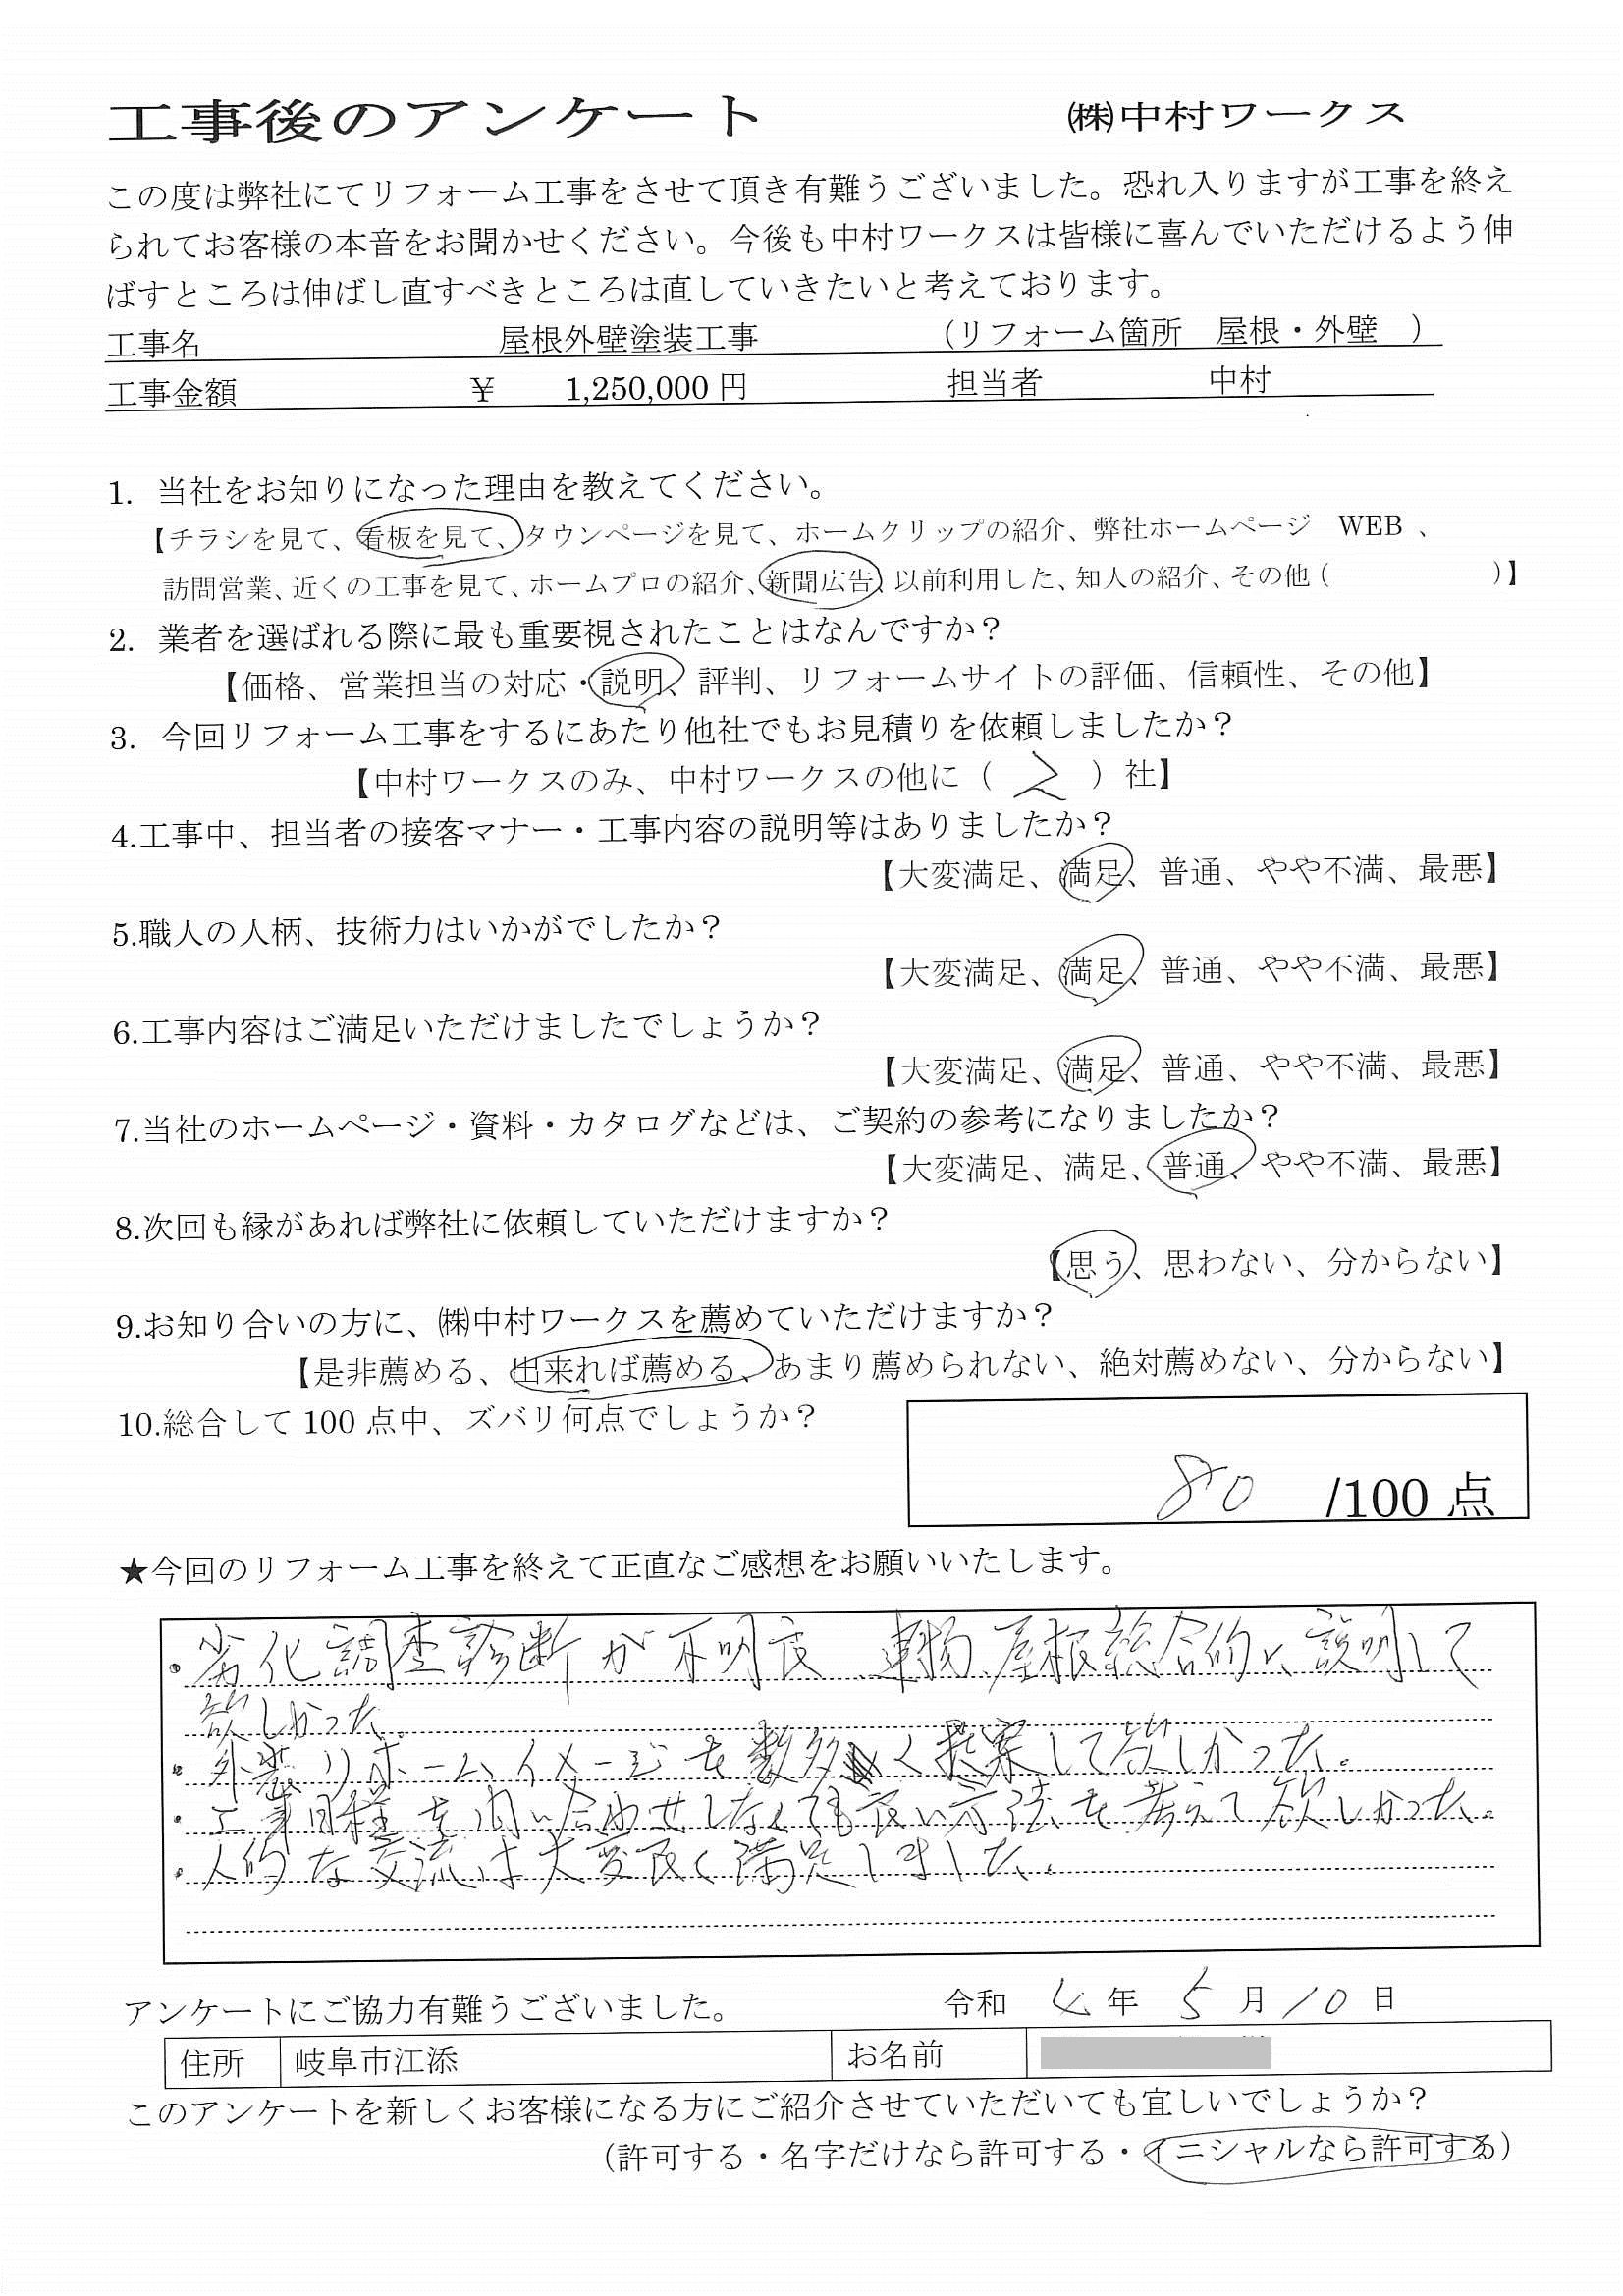 工事後のアンケート ㈱中村ワークス
この度は弊社にてリフォーム工事をさせて頂き有難うございました。恐れ入りますが工事を終え
られてお客様の本音をお聞かせください。今後も中村ワークスは皆様に喜んでいただけるよう伸
ばすところは伸ばし直すべきところは直していきたいと考えております。
工事名 屋根外壁塗装工事 （リフォーム箇所 屋根・外壁 ）
工事金額 ￥ 1,250,000 円 担当者 中村
1. 当社をお知りになった理由を教えてください。
【チラシを見て、看板を見て、タウンページを見て、ホームクリップの紹介、弊社ホームページ WEB 、
訪問営業、近くの工事を見て、ホームプロの紹介、新聞広告、以前利用した、知人の紹介、その他（ ）】
2. 業者を選ばれる際に最も重要視されたことはなんですか？
【価格、営業担当の対応・説明、評判、リフォームサイトの評価、信頼性、その他】
3. 今回リフォーム工事をするにあたり他社でもお見積りを依頼しましたか？
【中村ワークスのみ、中村ワークスの他に（ 2 ）社】
4.工事中、担当者の接客マナー・工事内容の説明等はありましたか？
【大変満足、満足、普通、やや不満、最悪】
5.職人の人柄、技術力はいかがでしたか？
【大変満足、満足、普通、やや不満、最悪】
6.工事内容はご満足いただけましたでしょうか？
【大変満足、満足、普通、やや不満、最悪】
7.当社のホームページ・資料・カタログなどは、ご契約の参考になりましたか？
【大変満足、満足、普通、やや不満、最悪】
8.次回も縁があれば弊社に依頼していただけますか？
【思う、思わない、分からない】
9.お知り合いの方に、㈱中村ワークスを薦めていただけますか？
【是非薦める、出来れば薦める、あまり薦められない、絶対薦めない、分からない】
10.総合して 100 点中、ズバリ何点でしょうか？
80 /100 点
★今回のリフォーム工事を終えて正直なご感想をお願いいたします。
・劣化調査診断が不明夜、建物、屋根総合的に説明して
欲しかった。
・外装リホームイメージを数多く提案して欲しかった。
・工事日程を問い合わせしなくても良い方法を考えて欲しかった。
・人的な交流は大変良く満足しました。
アンケートにご協力有難うございました。 令和 4 年 5 月 10 日
住所 岐阜市江添 お名前
このアンケートを新しくお客様になる方にご紹介させていただいても宜しいでしょうか？
（許可する・名字だけなら許可する・イニシャルなら許可する）